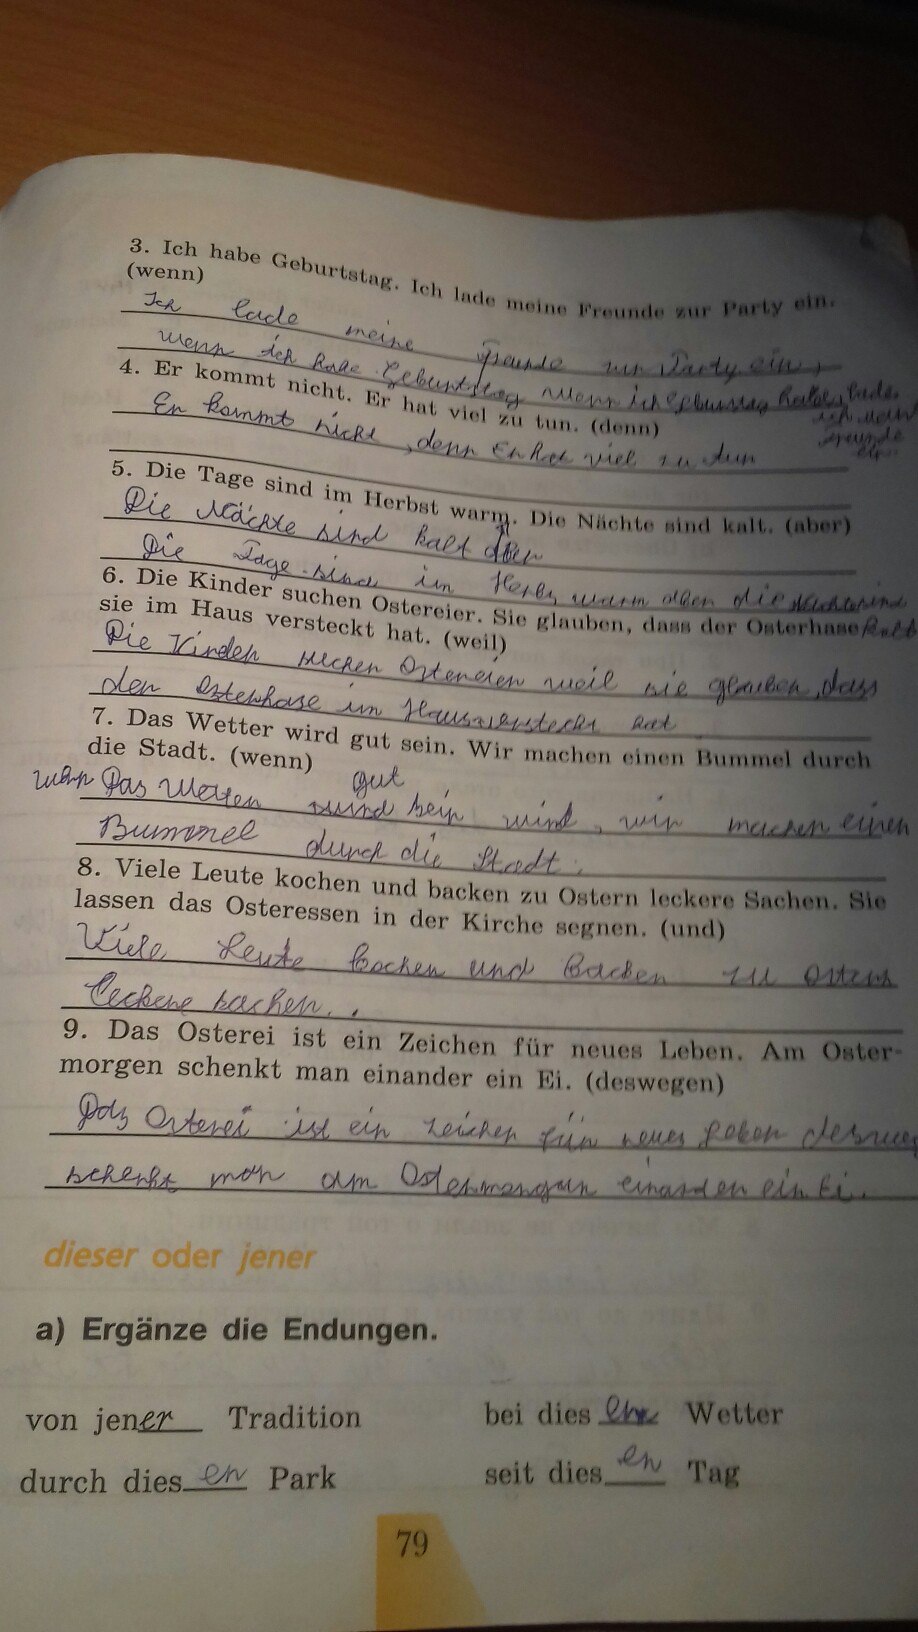 3. Ich habe Geburtstag. Ich lade meine Freunde zur Party ein.
(wenn)
Ich lade meine Freunde zur Party ein,
wenn ich habe Geburtstag wenn ich Geburtstag habe, lade
ich meine
Freunde
ein.
4. Er kommt nicht. Er hat viel zu tun. (denn)
Er kommt nicht, denn Er hat viel zu tun
5. Die Tage sind im Herbst warm. Die Nächte sind kalt. (aber)
Die Nächte sind kalt aber
Die Tage sind im Herbs warm aber die Nächte sind
kalt
6. Die Kinder suchen Ostereier. Sie glauben, dass der Osterhase
sie im Haus versteckt hat. (weil)
Die Kinder suchen Ostereier weil sie glauben, dass
der Osterhase im Haus versteckt hat
7. Das Wetter wird gut sein. Wir machen einen Bummel durch
die Stadt. (wenn)
gut
wenn Das Wetter sein wird, wir machen einen
Bummel durch die Stadt.
8. Viele Leute kochen und backen zu Ostern leckere Sachen. Sie
lassen das Osteressen in der Kirche segnen. (und)
Viele Leute kochen und backen zu Ostern
leckere sachen.
9. Das Osterei ist ein Zeichen für neues Leben. Am Oster-
morgen schenkt man einander ein Ei. (deswegen)
Das Osterei ist ein Zeichen für neues Leben
schenkt man am Ostermorgen einander ein Ei.
dieser oder jener
a) Ergänze die Endungen.
von jener Tradition
bei dies Wetter
durch dies en Park
seit dies en Tag
79